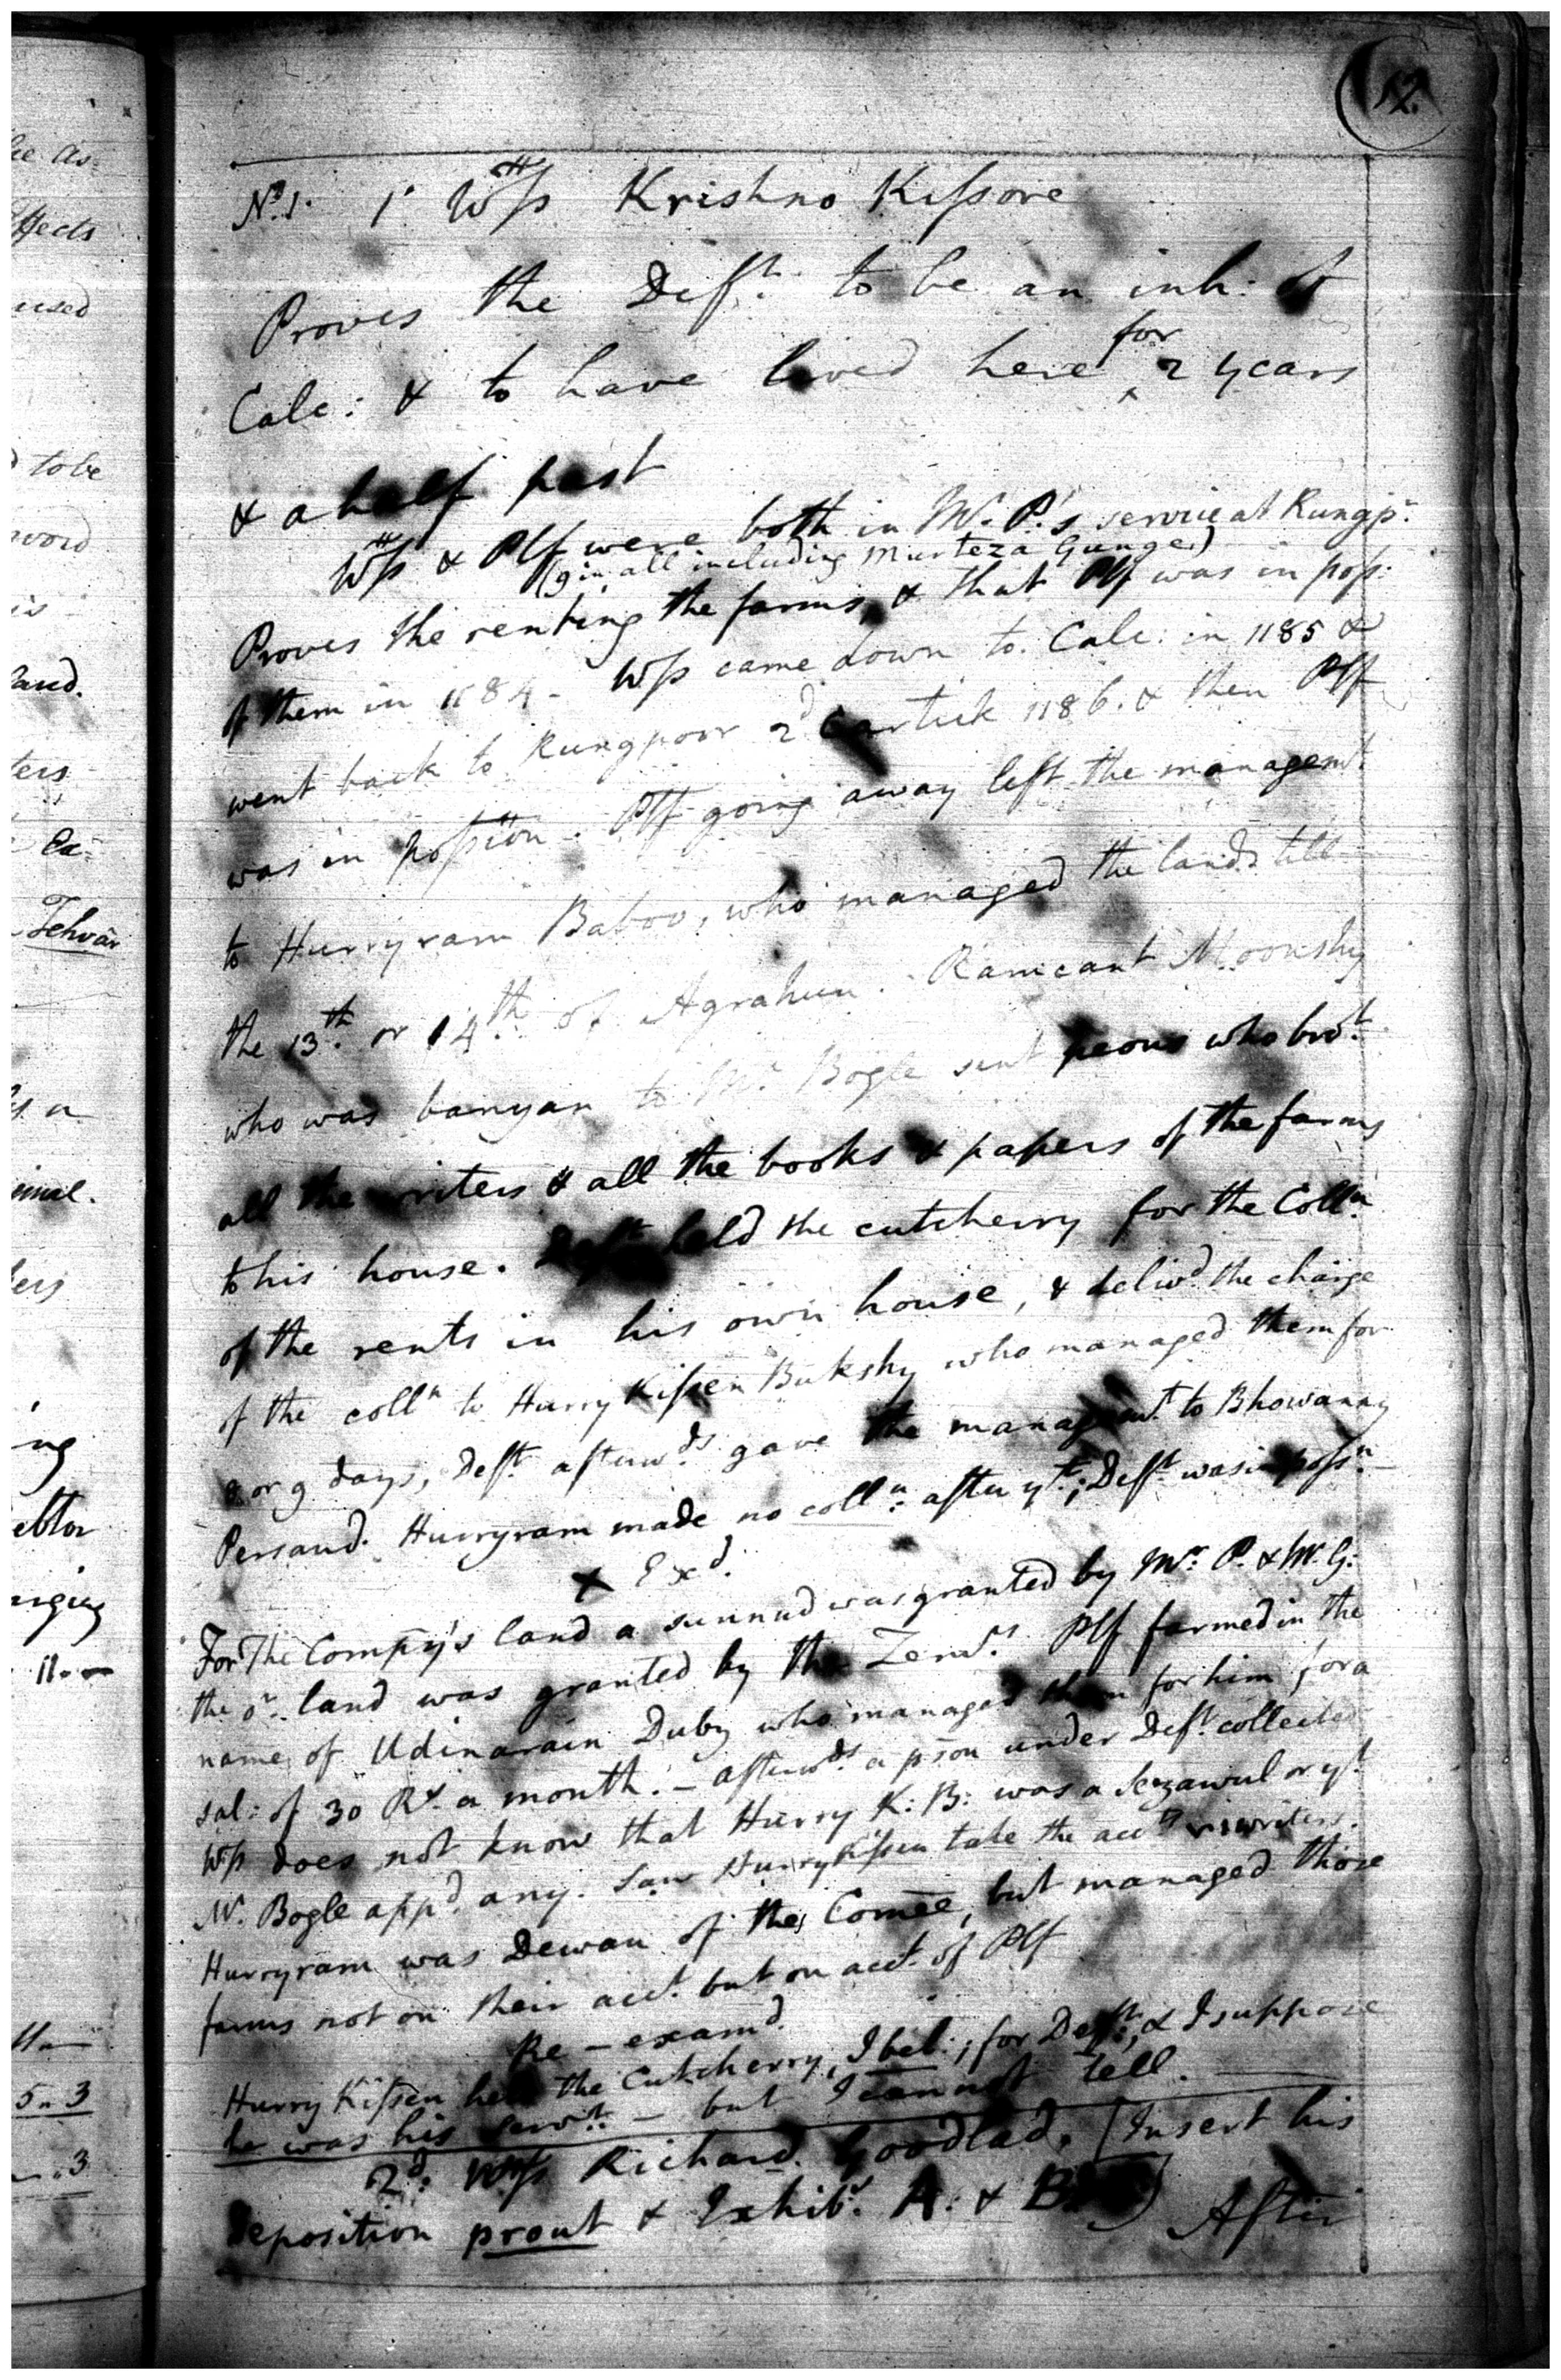 12.
No. 1. 1. Wss Krishno Kissore
Proves the Deft. to be an inh: of
Calc: & to have lived here for 2 years
& a half past
Wss & Plf were both in Mr. P.'s service at Rungpr.
(9 in all including Murteza Gunge)
Proves the renting the farms, & that Plf was in poss:
of them in 1184 - Wss came down to Calc: in 1185 &
went back to Rungpoor 2d Cartick 1186. & then Plf
was in possion. Plf going away left the managemt
to Hurryram Baboo, who managed the lands till
the 13th. or 14th. of Agrahun. Ramcant Moonshy
who was banyan to Mr. Bogle sent peons who brot.
all the writers & all the books & papers of the farms
to his house. Deft. held the cutcherry for the Colln.
of the rents in his own house, & delivd. the charge
of the colln to Hurry Kissen Bukshy who managed them for
8 or 9 days, Deft. afterwds. gave the managemt. to Bhowanny
Persaud. Hurryram made no colln. after yt.; Deft. was in possn.
X Exd.
For The Compy's land a sunnud was granted by Mr. P. & Mr. G:
the or. land was granted by the Zemrs. Plf farmed in the
name of Udinarain Duby who managed them for him for a
sal: of 30 Rs. a month. - afterwds. a pson under Deft. collected
Wss does not know that Hurry K: B: was a Sezawul or yt
Mr. Bogle appd. any. Saw Hurry Kissen take the accts writers.
Hurryram was Dewan of the Comee, but managed those
farms not on their acct. but on acct. of Plf
Re-examd.
Hurry Kissen held the Cutcherry, I bel:, for Deft:, & I suppose
he was his servt. - but I cannot tell.
2d: Wss Richard Goodlad. [Insert his
deposition prout & Exhibs. A: & B:] After